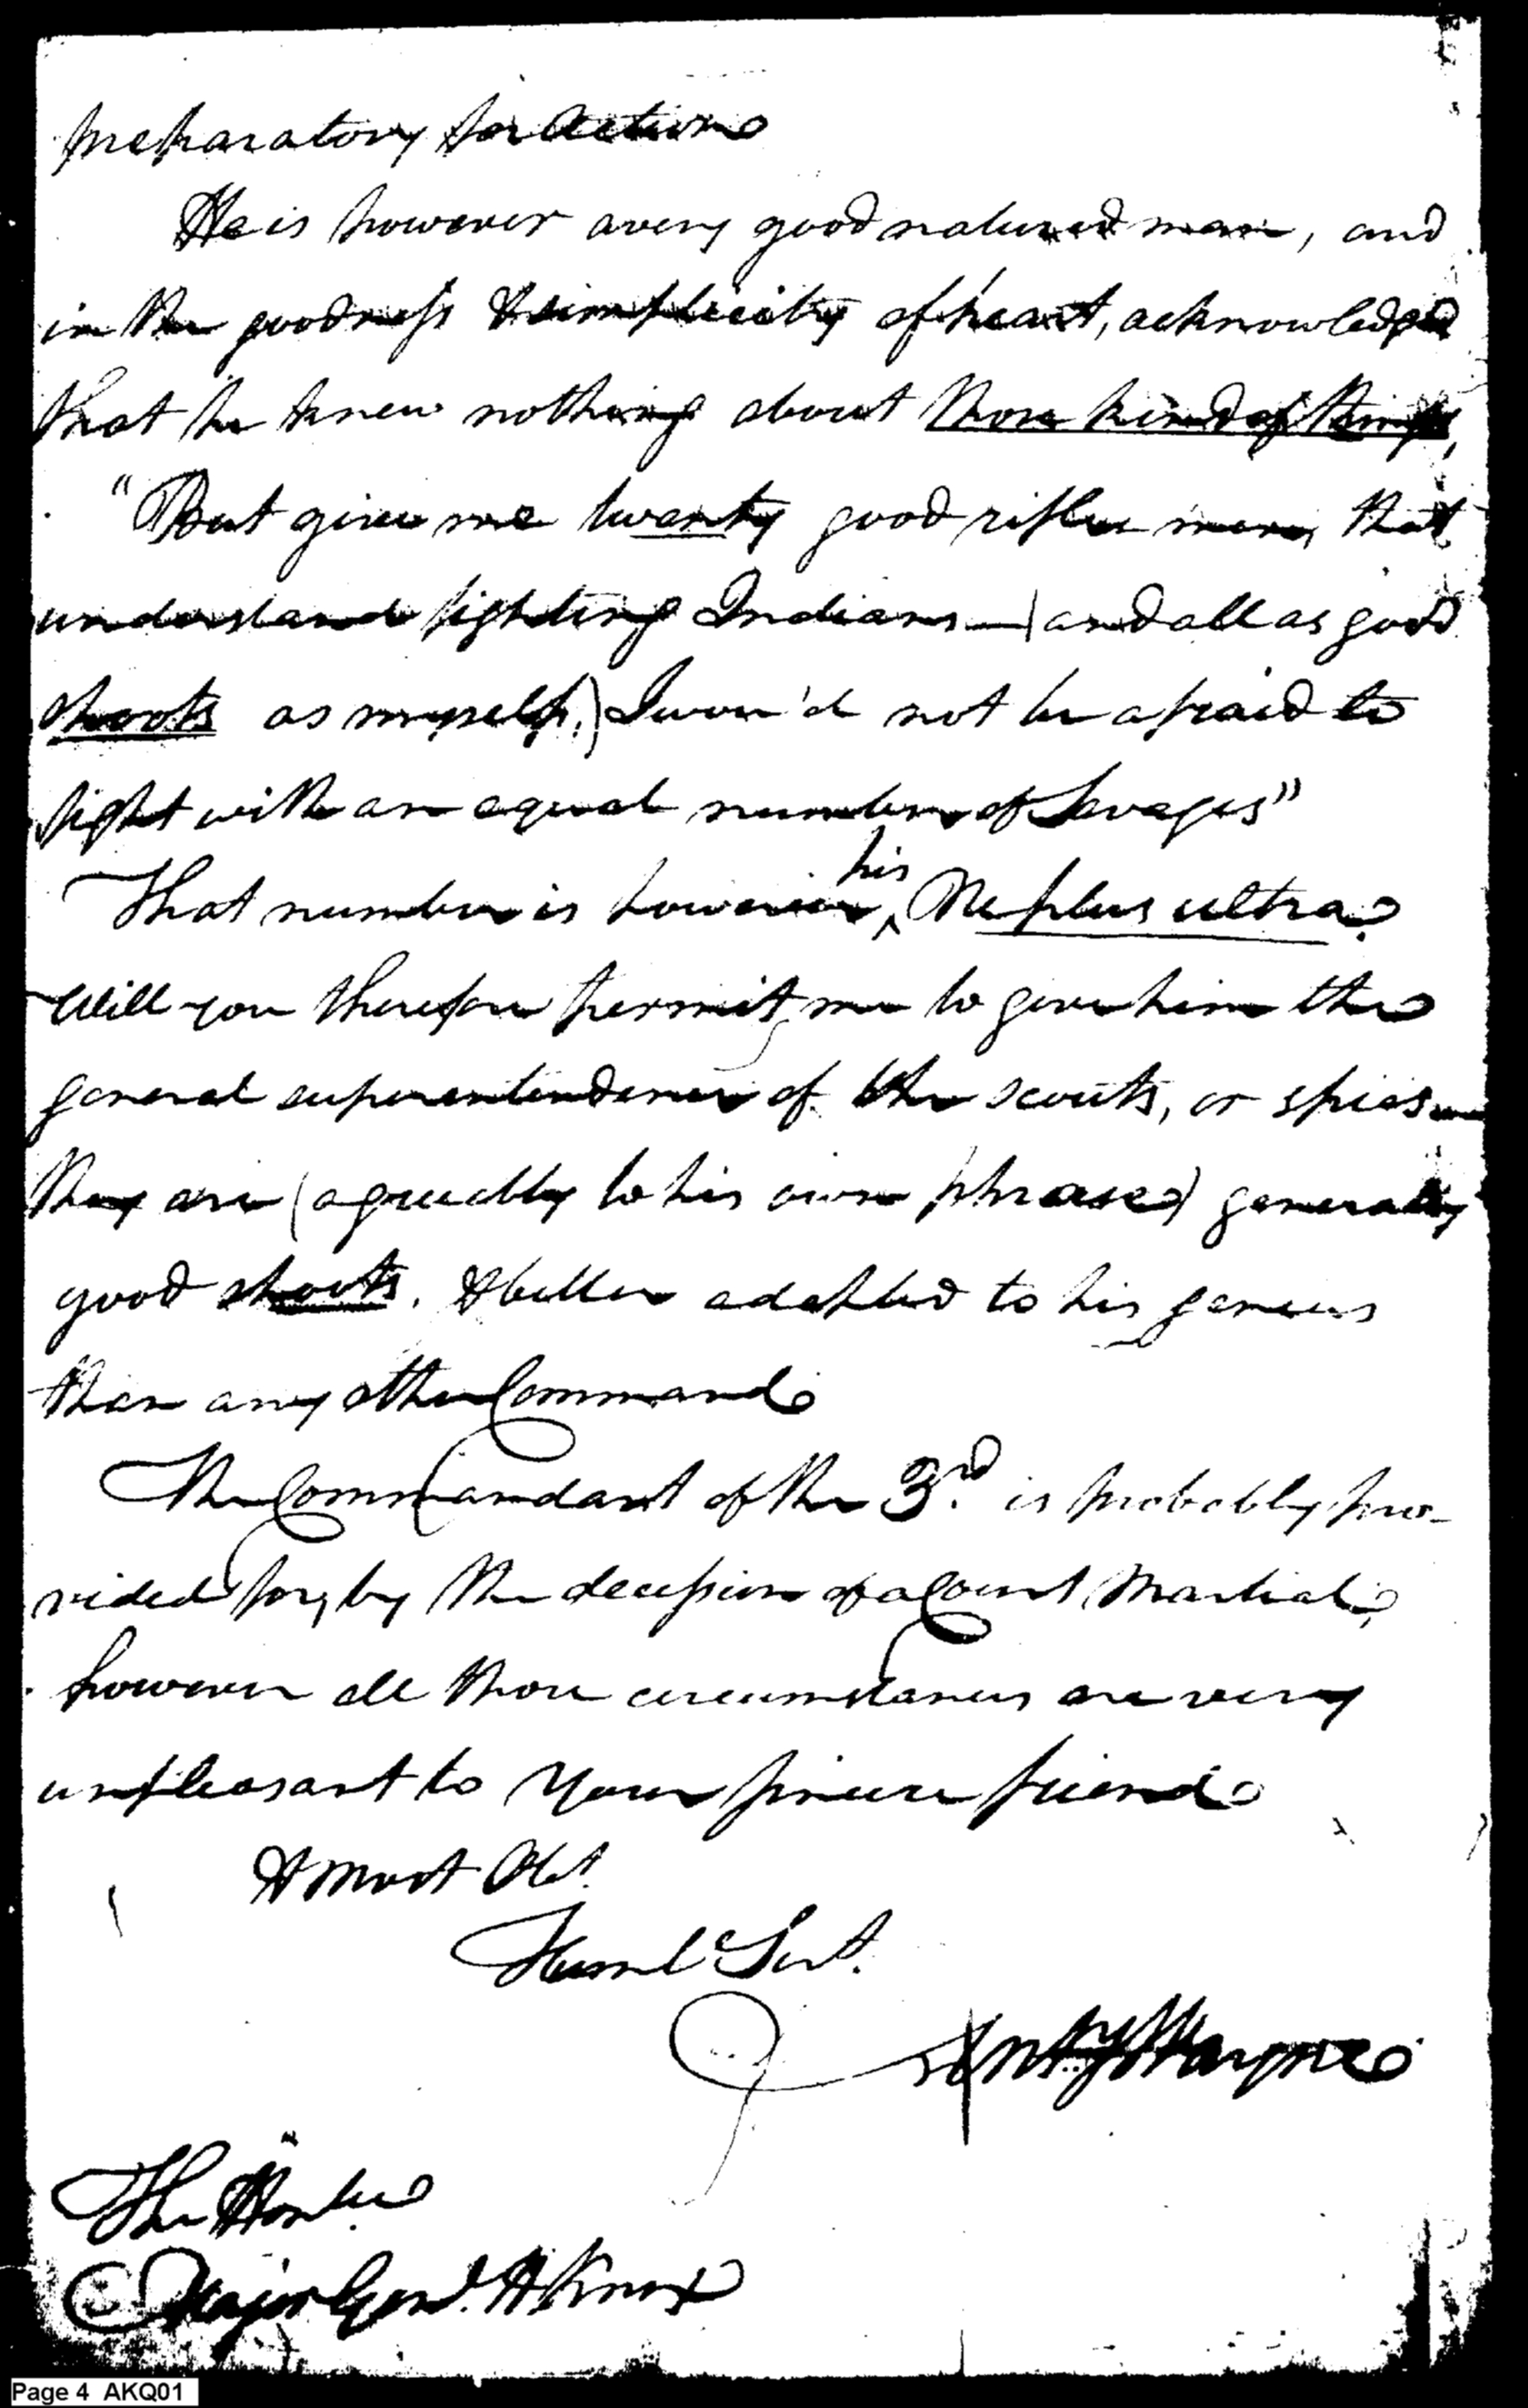 preparatory for Action
He is however a very good natured man, and
in the goodness & simplicity of heart, acknowledged
that he knew nothing about those kind of things,
"But give me twenty good rifle men, that
understand fighting Indians — (and all as good
shoots as myself,) I wou'd not be afraid to
fight with an equal number of Savages"
That number is however his Ne plus ultra.
Will you therefore permit me to give him the
general superentendence of the scouts, or spies —
they are (agreeably to his own phrase) generally
good shoots. & better adapted to his genius
than any other Command
The Commandant of the 3rd. is probably pro-
vided for, by the decession of a Court Martial,
however all those circumstances are very
unpleasant to Your sincere friend
& most Obt.
Huml Sert.
Anty Wayne
The Honble
Major Genl. H Knox
Page 4 AKQ01